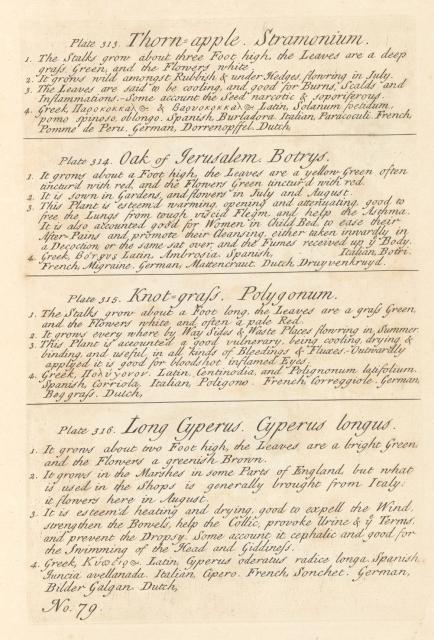 Plate 313. Thorn=apple. Stramonium.
1. The Stalks grow about three Foot high, the Leaves are a deep
grass Green, and the Flowers white.
2. It grows wild amongst Rubbish & under Hedges, flowring in July.
3. The Leaves are said to be cooling, and good for Burns, Scalds and
Inflammations.-Some account the Seed narcotic & soporiferous.
4. Greek, & Latin, Solanum foetidum,
pomo spinoso, oblongo. Spanish, Burladora. Italian, Paracoculi. French,
Pomme de Peru. German, Dorrenopffel. Dutch,
Plate 314. Oak of Jerusalem. Botrys.
1. It grows about a Foot high, the Leaves are a yellow Green often
tinctur'd with red, and the Flowers Green tinctur'd with red.
2. It is sown in Gardens, and flowers in July and August.
3. This Plant is esteem'd warming, opening and attenuating, good to
free the Lungs from tough viscid Flegm, and help the Asthma.
It is also accounted good for Women in Child Bed, to ease their
After-Pains and promote their Cleansing, either taken inwardly in
a Decoction or the same sat over, and the Fumes received up ye Body.
4. Greek, Βότρυς. Latin, Ambrosia. Spanish, Italian, Botri.
French, Migraine. German, Mattencraut. Dutch, Druyvenkruyd.
Plate 315. Knot-grass. Polygonum.
1. The Stalks grow about a Foot long, the Leaves are a grass Green,
and the Flowers white and often a pale Red.
2. It grows every where by Way Sides & Waste Places flowring in Summer.
3. This Plant is accounted a good vulnerary, being cooling, drying &
binding, and useful in all kinds of Bleedings & Fluxes-Outwardly
applyed it is good for bloodshot inflamed Eyes.
4. Greek, Πολύγονον. Latin, Centinodia, and Polignonum latifolium.
Spanish, Corriola. Italian, Poligono. French, Correggiole. German,
Beggrass. Dutch,
Plate 316. Long Cyperus. Cyperus longus.
1. It grows about two Foot high, the Leaves are a bright Green
and the Flowers a greenish Brown.
2. It grows in the Marshes in some Parts of England, but what
is used in the Shops is generally brought from Italy:
it flowers here in August.
3. It is esteem'd heating and drying, good to expell the Wind,
strengthen the Bowels, help the Collic, provoke Urine & ye Terms,
and prevent the Dropsy. Some account it cephalic and good for
the Swimming of the Head and Giddiness.
4. Greek, Latin, Cyperus oderatus radice longa. Spanish,
Juncia avellanada. Italian, Cipero. French, Sonchet. German,
Bilder Galgan. Dutch,
No. 79.